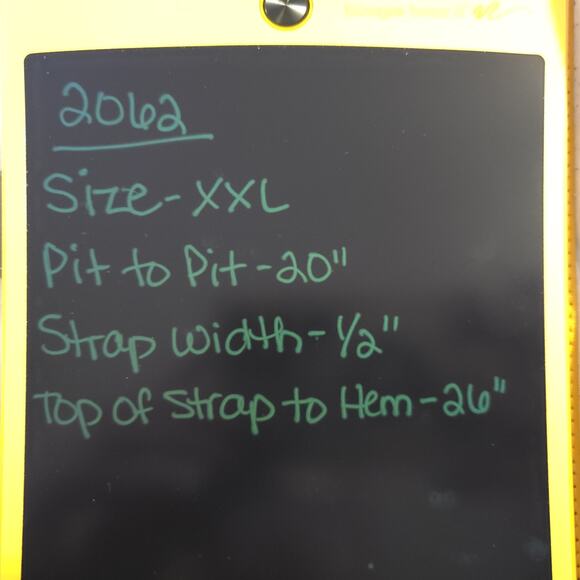 2062
Size-XXL
Pit to Pit-20"
Strap Width-1/2"
Top of Strap to Hem-26"